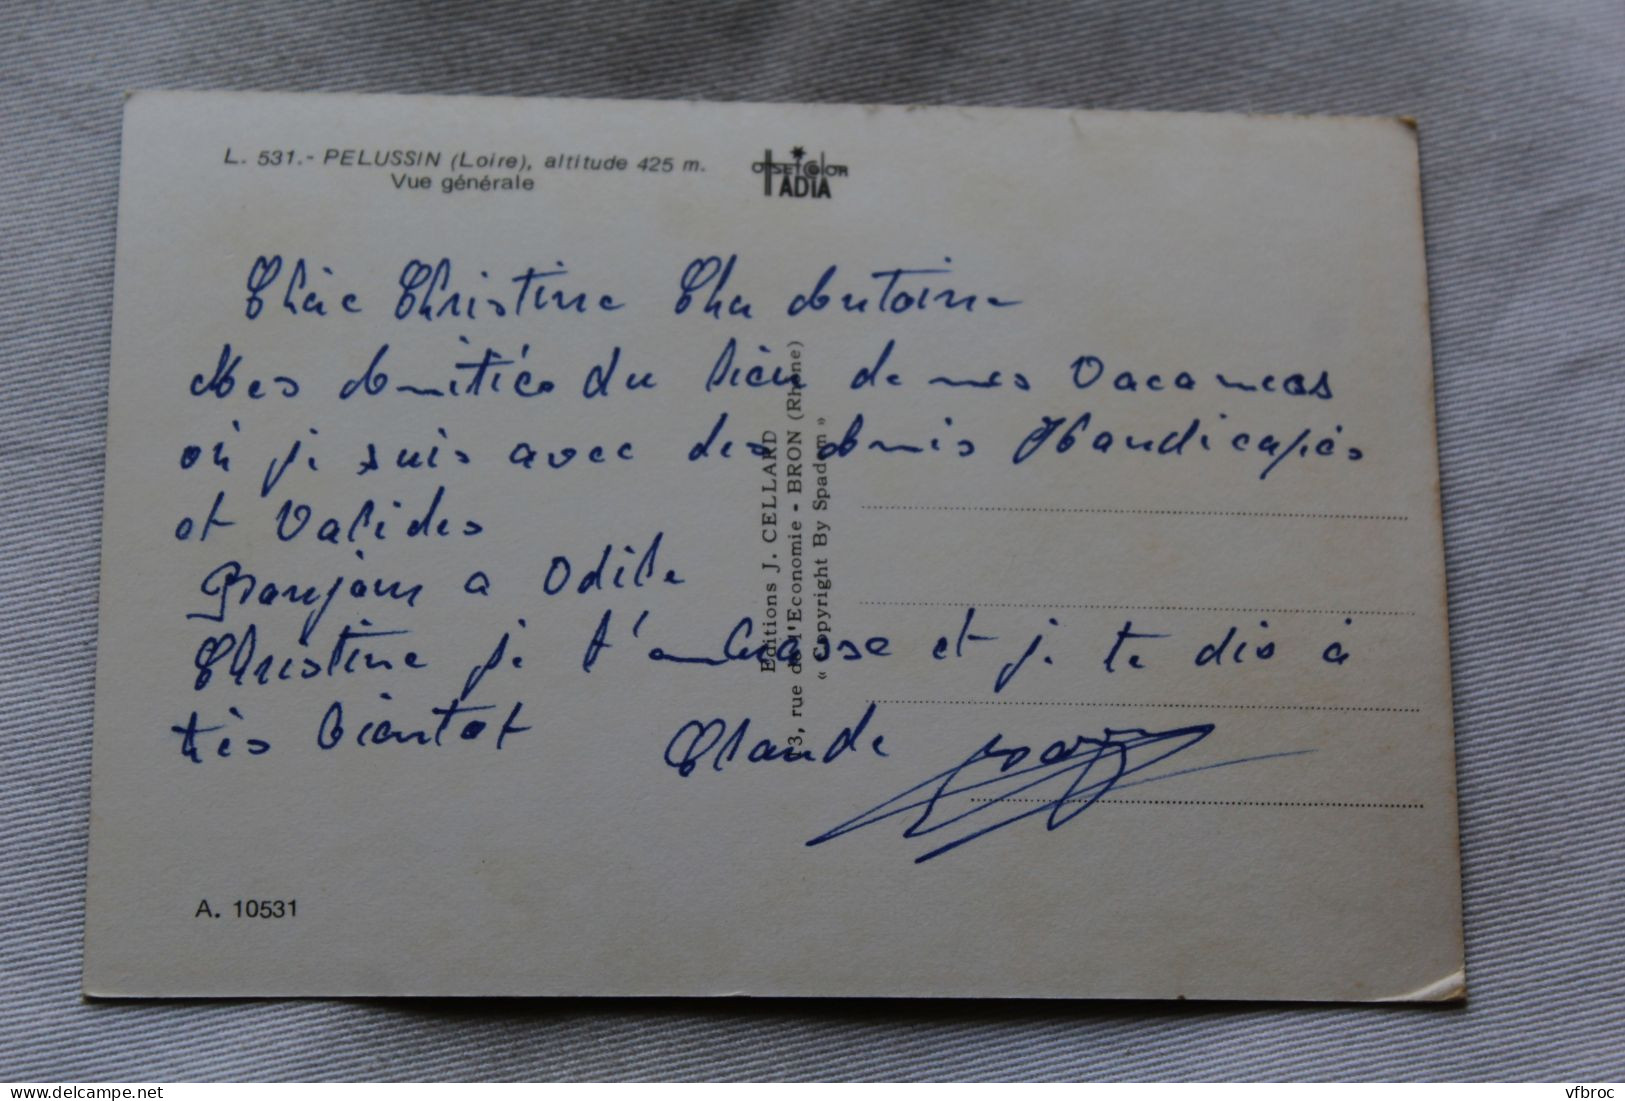 L. 531.- PELUSSIN (Loire), altitude 425 m.
Vue générale
OFFSETCOLOR
IADIA
Chère Christine Cher Antoine
Mes Amitiés du lieu de mes Vacances
où je suis avec des Amis Handicapés
et Valides
Bonjour a Odile
Christine je t'embrasse et je te dis à
très bientot Claude
Editions J. CELLARD
3, rue de l'Economie - BRON (Rhône)
« Copyright By Spadem »
A. 10531
delcampe.net
vfbroc